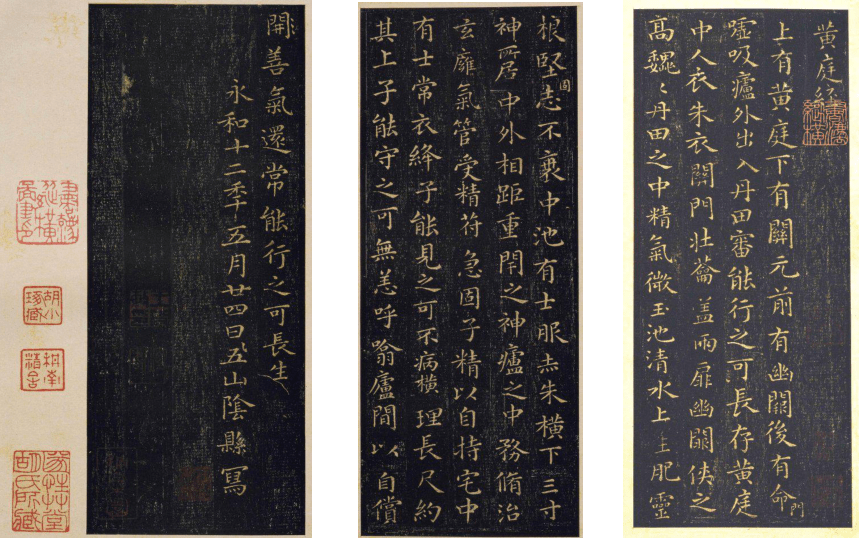 黃庭經
上有黃庭下有關元前有幽闕後有命門
噓吸廬外出入丹田審能行之可長存黃庭
中人衣朱衣關門壯籥蓋兩扉幽闕俠之
高魏〻丹田之中精氣微玉池清水上生肥靈
根堅固志不衰中池有士服赤朱橫下三寸
神所居中外相距重閉之神廬之中務脩治
玄靡氣管受精符急固子精以自持宅中
有士常衣絳子能見之可不病橫理長尺約
其上子能守之可無恙呼翕廬間以自償
開善氣還常能行之可長生
永和十二年五月廿四日五山陰縣寫
胡小琢藏